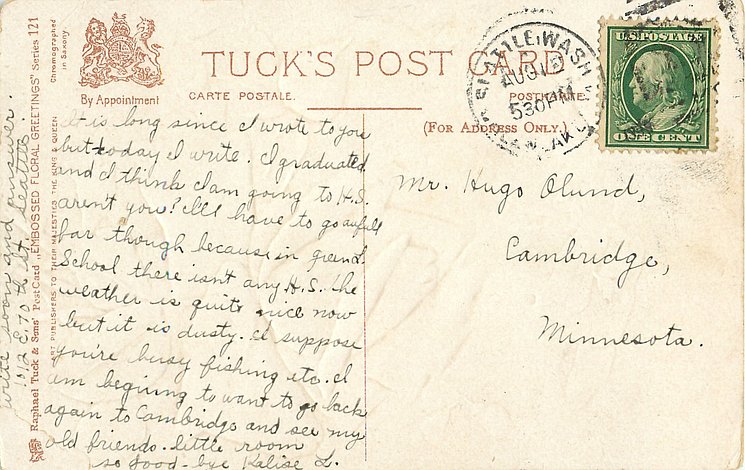 TUCK'S POST CARD
By Appointment
CARTE POSTALE.
POSTKARTE.
(FOR ADDRESS ONLY.)
Chromographed
in Saxony
Raphael Tuck & Sons' Post Card „EMBOSSED FLORAL GREETINGS" Series 121
ART PUBLISHERS TO THEIR MAJESTIES THE KING & QUEEN
SEATTLE, WASH
AUG 15
530 PM
U.S. POSTAGE
ONE CENT
It is long since I wrote to you
but today I write. I graduated
and I think I am going to H.S.
aren't you? I'll have to go awfull
far though because in
School there isn't any H.S. The
weather is quite nice now
but it is dusty. I suppose
you're busy fishing etc. I
am begining to want to go back
again to Cambridge and see my
old friends. little room
so good-bye L.
write soon and answer.
1012 E. 70th St. Seattle.
Mr. Hugo Olund,
Cambridge,
Minnesota.